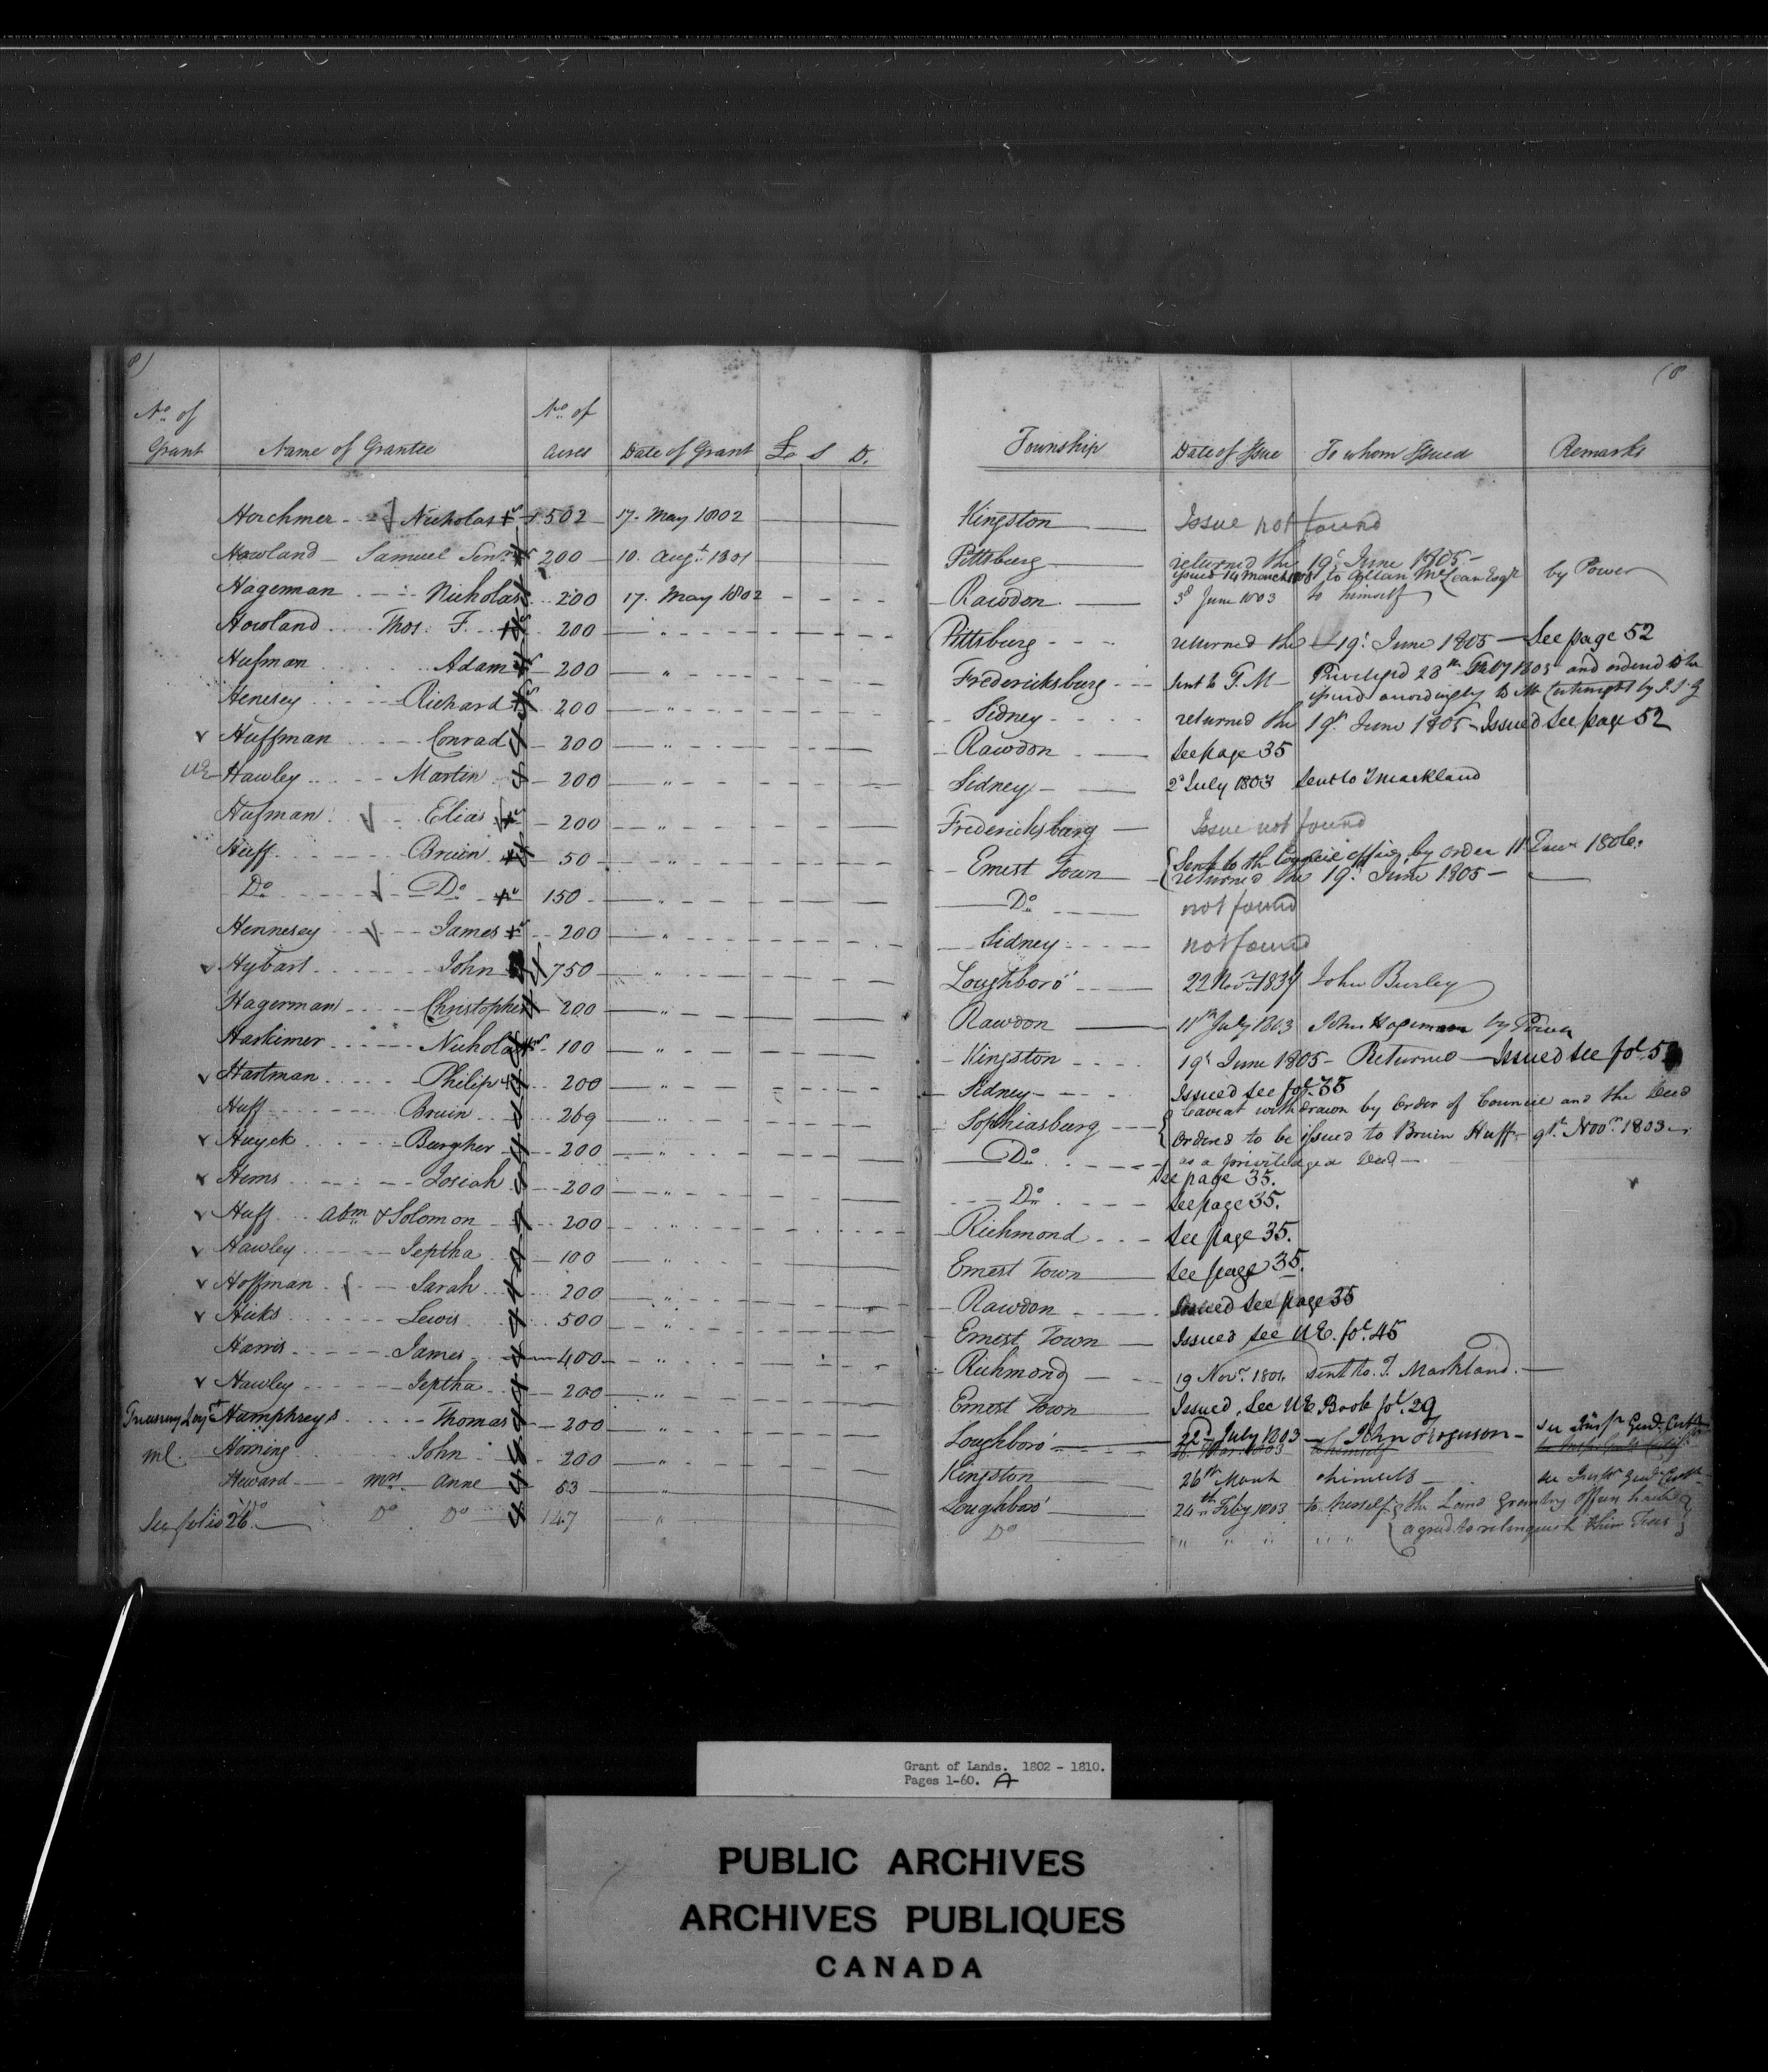 8)
No. of Grant Name of Grantee No. of Acres Date of Grant £ S D.
Horchmer Nicholas 502 17. May 1802
Howland Samuel Senr. 200 10. Augt. 1801
Hagerman Nicholas 200 17. May 1802
Howland Thos. F. 200 "
Hufman Adam 200 "
Henesey Richard 200 "
Huffman Conrad 200 "
UE Hawley Martin 200 "
Hufman Elias 200 "
Huff Bruin 50 "
Do Do 150 "
Hennesey James 200 "
Hybart John 750 "
Hagerman Christopher 200 "
Harkimer Nicholas 100 "
Hartman Philip 200 "
Huff Bruin 269 "
Huyck Burgher 200 "
Hems Josiah 200 "
Huff Abm & Solomon 200 "
Hawley Jeptha 100 "
Hoffman Sarah 200 "
Hicks Lewis 500 "
Harris James 400 "
Hawley Jeptha 200 "
Humphreys Thomas 200 "
ml. Horning John 200 "
Heward Mrs. Anne 53 "
See folio 26 Do Do Do 147 "
(8
Township Date of Issue To whom Issued Remarks
Kingston Issue not found
Pittsburg returned the 19t. June 1805
issued 14 March 1808 to Allan McLean Esqr by Power
Rawdon 3d June 1803 to himself
Pittsburg returned the 19t. June 1805 See page 52
Fredericksburg Sent to T. M Priviledged 28th Feby 1805 and ordered to be
issued accordingly to Mr Cartwright by
Sidney returned the 19th June 1805 Issued See page 52
Rawdon See page 35
Sidney 2d July 1803 Sent to T Markland
Fredericksburg Issue not found
Ernest Town Sent to the Council office by order 11 1806.
returned the 19t. June 1805
Do not found
Sidney not found
Loughboro' 22 Novr 1834 John Burley
Rawdon 11th July 1803 John Hagerman by Power
Kingston 19t June 1805 Returned Issued See fol. 5
Sidney Issued See fol. 35
Sophiasburg Caveat withdrawn by Order of Council and the Deed
Ordered to be issued to Bruin Huff 9t. Novr. 1803
Do as a priviledged Deed
See page 35.
Do See page 35.
Richmond See page 35.
Ernest Town See page 35.
Rawdon Issued See page 35
Ernest Town Issued See UE. fol. 45
Richmond 19 Novr. 1801 Sent to T. Markland.
Ernest Town Issued, See UE Book fol. 29
Loughboro' 22d July 1803 John Ferguson See Inspr Genl. Certft
Kingston 26th March himself See Inspr Genl. Certft
Loughboro' 24th Feby 1803 to herself the Land Granting Officers have
Do " " " " " agreed to relinquish their Fees
Grant of Lands. 1802 - 1810.
Pages 1-60. A
PUBLIC ARCHIVES
ARCHIVES PUBLIQUES
CANADA